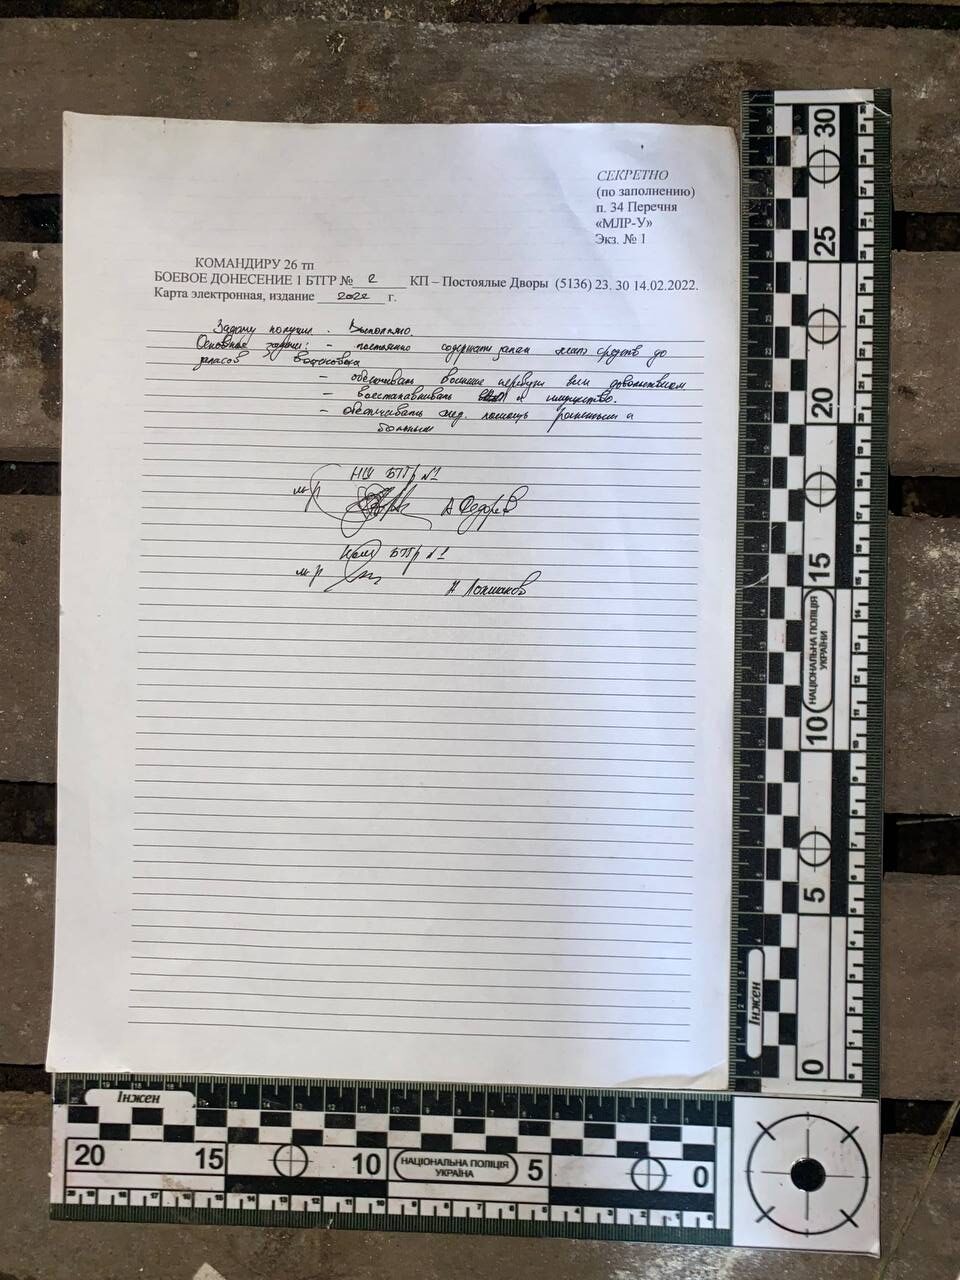 СЕКРЕТНО
(по заполнению)
п. 34 Перечня
«МЛР-У»
Экз. № 1
КОМАНДИРУ 26 тп
БОЕВОЕ ДОНЕСЕНИЕ 1 БТГР № 2 КП – Постоялые Дворы (5136) 23. 30 14.02.2022.
Карта электронная, издание 2022 г.
Задачу получил. Выполняю
Основные задачи: - постоянно содержать запас мат. средств до
запасов
- обеспечивать воинские перевозки всем довольствием
- восстанавливать и имущество.
- обеспечивать мед. помощь раненным и
больным
НШ БТГр №1
м-р А Федорев
Ком БТГр №1
м-р
30
25
20
15
НАЦІОНАЛЬНА ПОЛІЦІЯ
УКРАЇНИ
10
5
Інжен
0
Інжен
20 15 10 НАЦІОНАЛЬНА ПОЛІЦІЯ 5 0
УКРАЇНА